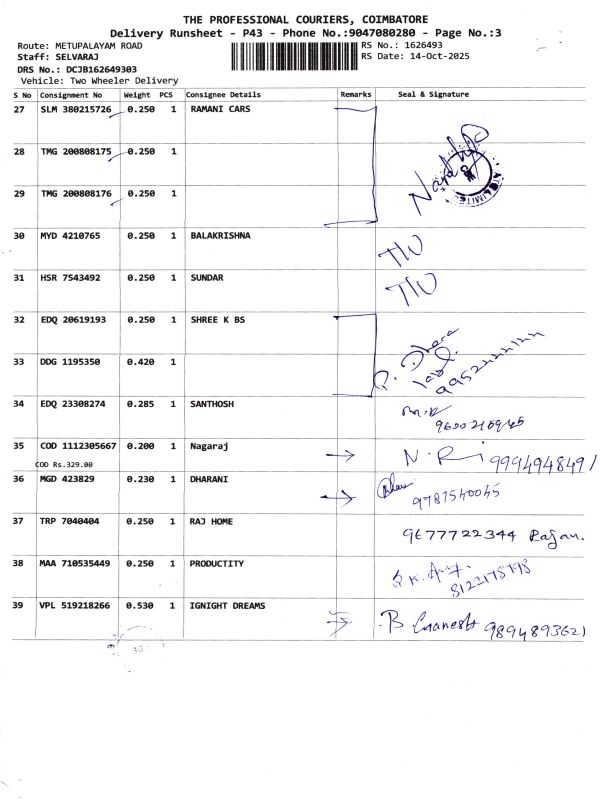 THE PROFESSIONAL COURIERS, COIMBATORE
Delivery Runsheet - P43 - Phone No.:9047080280 - Page No.:3
Route: METUPALAYAM ROAD RS No.: 1626493
Staff: SELVARAJ RS Date: 14-Oct-2025
DRS No.: DCJB162649303
Vehicle: Two Wheeler Delivery
S No Consignment No Weight PCS Consignee Details Remarks Seal & Signature
27 SLM 380215726 0.250 1 RAMANI CARS
28 TMG 200808175 0.250 1
29 TMG 200808176 0.250 1
30 MYD 4210765 0.250 1 BALAKRISHNA
31 HSR 7543492 0.250 1 SUNDAR
32 EDQ 20619193 0.250 1 SHREE K BS
33 DDG 1195350 0.420 1
34 EDQ 23308274 0.285 1 SANTHOSH
35 COD 1112305667 0.200 1 Nagaraj 9994948491
COD Rs.329.00
36 MGD 423829 0.230 1 DHARANI
9781540045
37 TRP 7040404 0.250 1 RAJ HOME 9677722344 Rajan.
38 MAA 710535449 0.250 1 PRODUCTITY
8122178198
39 VPL 519218266 0.530 1 IGNIGHT DREAMS B Ganesh 9894893621